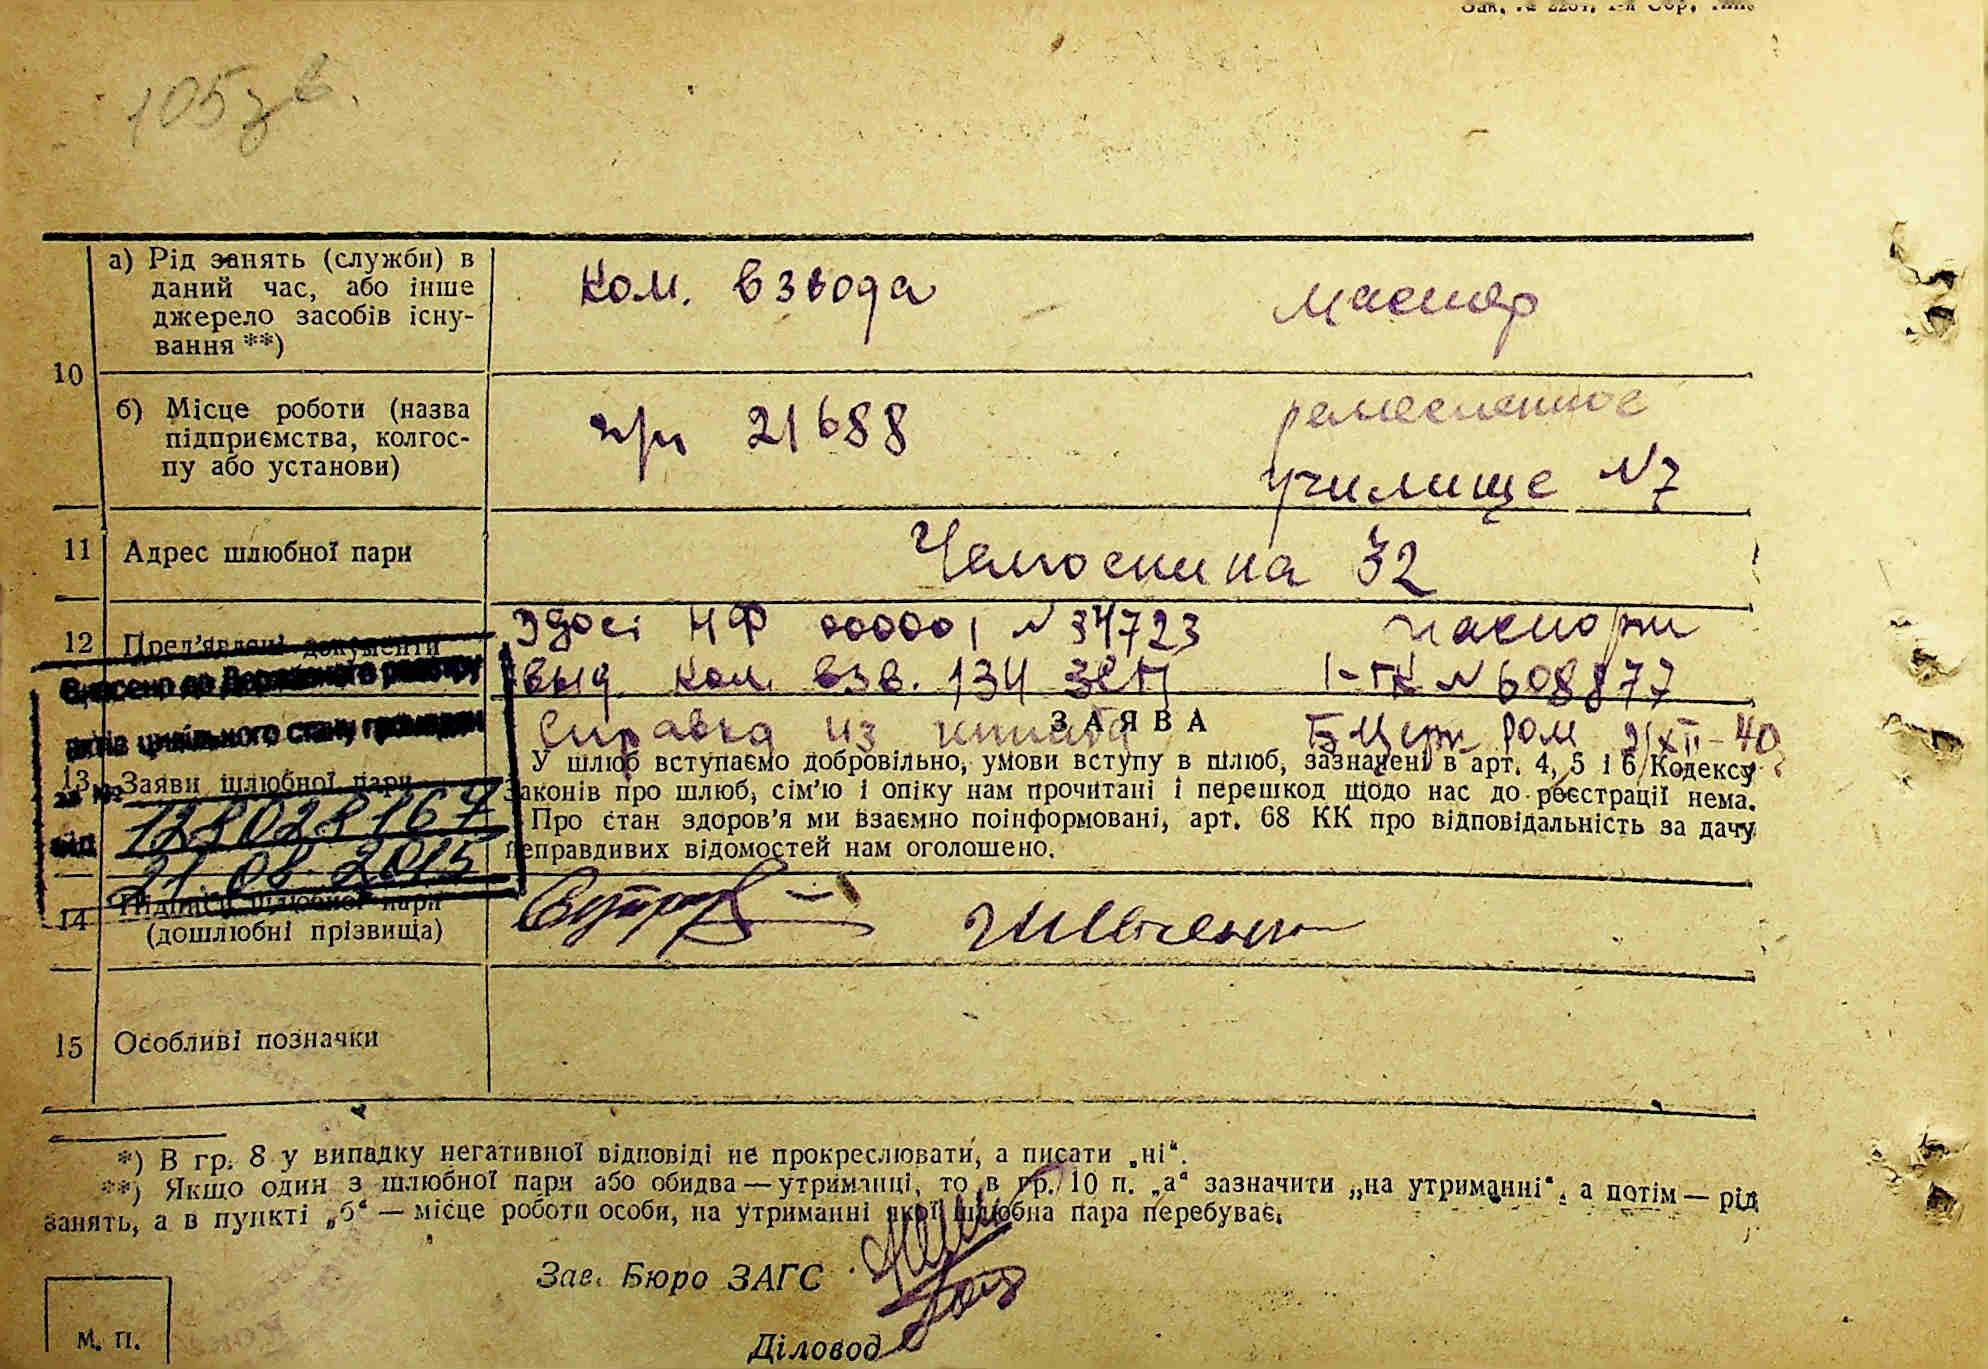 105 зв.
а) Рід занять (служби) в
даний час, або інше
джерело засобів існу-
вання **)
ком. взвода
мастер
10
б) Місце роботи (назва
підприємства, колгос-
пу або установи)
п/п 21688
ремесленное
училище №7
11 Адрес шлюбної пари
Челюскина 32
12 Пред'явлені документи
НФ 000001 № 34723
паспорт
выд. ком. взв. 134
1-ГК № 608877
Справка из
Б Церк РОМ 21/XII-40
Внесено до Державного реєстру
актів цивільного стану громадян
за №
128028167
від
21.08.2015
ЗАЯВА
13 Заяви шлюбної пари
У шлюб вступаємо добровільно, умови вступу в шлюб, зазначені в арт. 4, 5 і 6 Кодексу
законів про шлюб, сім'ю і опіку нам прочитані і перешкод щодо нас до реєстрації нема.
Про стан здоров'я ми взаємно поінформовані, арт. 68 КК про відповідальність за дачу
неправдивих відомостей нам оголошено.
14 Підписи шлюбної пари
(дошлюбні прізвища)
15 Особливі позначки
*) В гр. 8 у випадку негативної відповіді не прокреслювати, а писати „ні“.
**) Якщо один з шлюбної пари або обидва — утриманці, то в гр. 10 п. „а“ зазначити „на утриманні“, а потім — рід
занять, а в пункті „б“ — місце роботи особи, на утриманні якої шлюбна пара перебуває.
Зав. Бюро ЗАГС
Діловод
М. П.